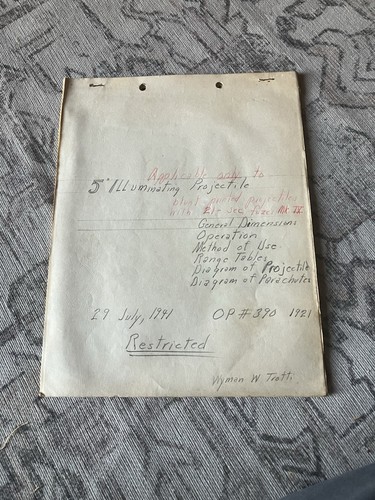 Applicable only to
5" Illuminating Projectile
blunt pointed projectiles
with 21 sec fuze Mk. IX.
General Dimensions
Operation
Method of Use
Range Tables
Diagram of Projectile
Diagram of Parachutes
29 July, 1941 OP # 390 1921
Restricted
Wymon W Trott